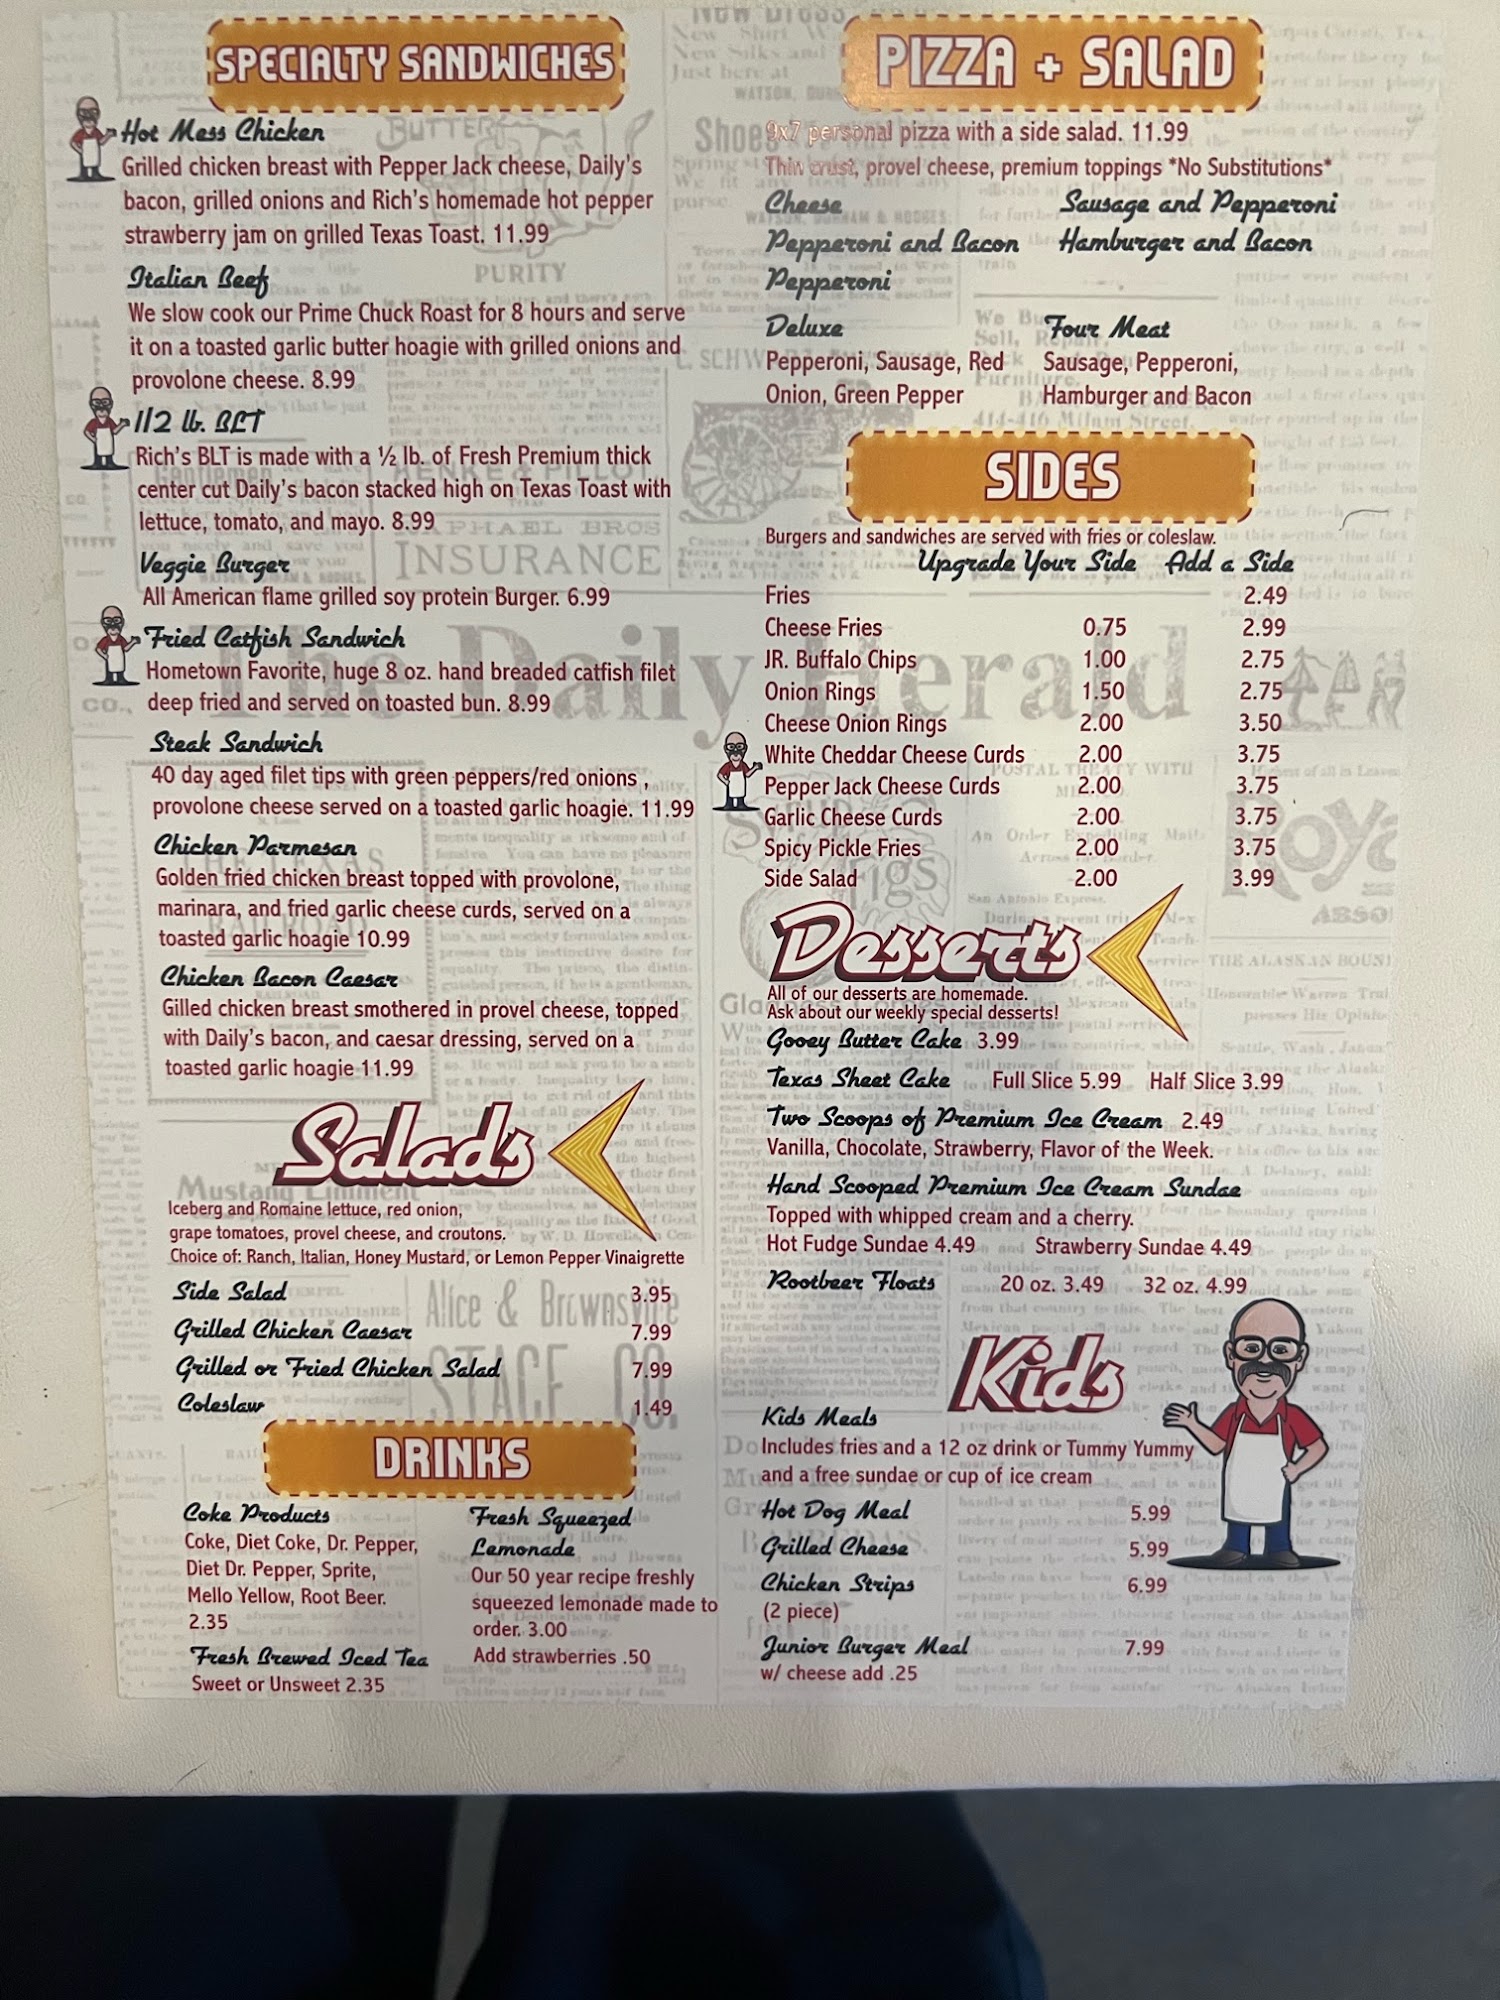 SPECIALTY SANDWICHES
Hot Mess Chicken
Grilled chicken breast with Pepper Jack cheese, Daily's
bacon, grilled onions and Rich's homemade hot pepper
strawberry jam on grilled Texas Toast. 11.99
Italian Beef
We slow cook our Prime Chuck Roast for 8 hours and serve
it on a toasted garlic butter hoagie with grilled onions and
provolone cheese. 8.99
1/2 lb. BLT
Rich's BLT is made with a ½ lb. of Fresh Premium thick
center cut Daily's bacon stacked high on Texas Toast with
lettuce, tomato, and mayo. 8.99
Veggie Burger
All American flame grilled soy protein Burger. 6.99
Fried Catfish Sandwich
Hometown Favorite, huge 8 oz. hand breaded catfish filet
deep fried and served on toasted bun. 8.99
Steak Sandwich
40 day aged filet tips with green peppers/red onions ,
provolone cheese served on a toasted garlic hoagie. 11.99
Chicken Parmesan
Golden fried chicken breast topped with provolone,
marinara, and fried garlic cheese curds, served on a
toasted garlic hoagie 10.99
Chicken Bacon Caesar
Gilled chicken breast smothered in provel cheese, topped
with Daily's bacon, and caesar dressing, served on a
toasted garlic hoagie 11.99
Salads
Iceberg and Romaine lettuce, red onion,
grape tomatoes, provel cheese, and croutons.
Choice of: Ranch, Italian, Honey Mustard, or Lemon Pepper Vinaigrette
Side Salad 3.95
Grilled Chicken Caesar 7.99
Grilled or Fried Chicken Salad 7.99
Coleslaw 1.49
DRINKS
Coke Products
Coke, Diet Coke, Dr. Pepper,
Diet Dr. Pepper, Sprite,
Mello Yellow, Root Beer.
2.35
Fresh Brewed Iced Tea
Sweet or Unsweet 2.35
Fresh Squeezed
Lemonade
Our 50 year recipe freshly
squeezed lemonade made to
order. 3.00
Add strawberries .50
PIZZA + SALAD
9x7 personal pizza with a side salad. 11.99
Thin crust, provel cheese, premium toppings *No Substitutions*
Cheese Sausage and Pepperoni
Pepperoni and Bacon Hamburger and Bacon
Pepperoni
Deluxe Four Meat
Pepperoni, Sausage, Red Sausage, Pepperoni,
Onion, Green Pepper Hamburger and Bacon
SIDES
Burgers and sandwiches are served with fries or coleslaw.
Upgrade Your Side Add a Side
Fries 2.49
Cheese Fries 0.75 2.99
JR. Buffalo Chips 1.00 2.75
Onion Rings 1.50 2.75
Cheese Onion Rings 2.00 3.50
White Cheddar Cheese Curds 2.00 3.75
Pepper Jack Cheese Curds 2.00 3.75
Garlic Cheese Curds 2.00 3.75
Spicy Pickle Fries 2.00 3.75
Side Salad 2.00 3.99
Desserts
All of our desserts are homemade.
Ask about our weekly special desserts!
Gooey Butter Cake 3.99
Texas Sheet Cake Full Slice 5.99 Half Slice 3.99
Two Scoops of Premium Ice Cream 2.49
Vanilla, Chocolate, Strawberry, Flavor of the Week.
Hand Scooped Premium Ice Cream Sundae
Topped with whipped cream and a cherry.
Hot Fudge Sundae 4.49 Strawberry Sundae 4.49
Rootbeer Floats 20 oz. 3.49 32 oz. 4.99
Kids
Kids Meals
Includes fries and a 12 oz drink or Tummy Yummy
and a free sundae or cup of ice cream
Hot Dog Meal 5.99
Grilled Cheese 5.99
Chicken Strips 6.99
(2 piece)
Junior Burger Meal 7.99
w/ cheese add .25
The Daily Herald